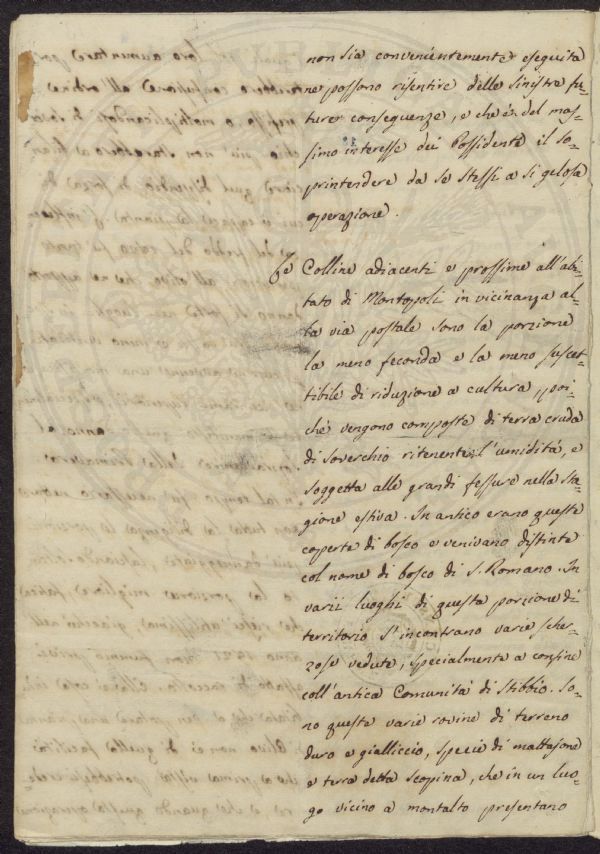 non sia convenientemente eseguita
ne possono risentire delle sinistre fu-
ture conseguenze, e che è del mas-
simo interesse dei Possidenti il so-
printendere da se stessi a si gelosa
operazione.
Le Colline adiacenti e prossime all'abi-
tato di Montopoli in vicinanza al-
la via postale sono la porzione
la meno feconda e la meno suscet-
tibile di riduzione a cultura, poi-
ché vengono composte di terra cruda
di soverchio ritenente l'umidità, e
soggetta alle grandi fessure nella sta-
gione estiva. In antico erano queste
coperte di bosco e venivano distinte
col nome di bosco di S. Romano. In
varii luoghi di questa porzione di
territorio s'incontrano varie scher-
zose vedute, specialmente a confine
coll'antica Comunità di Stibbio. So-
no queste varie rovine di terreno
duro e gialliccio, specie di mattajone
e terra detta scopina, che in un luo-
go vicino a montalto presentano